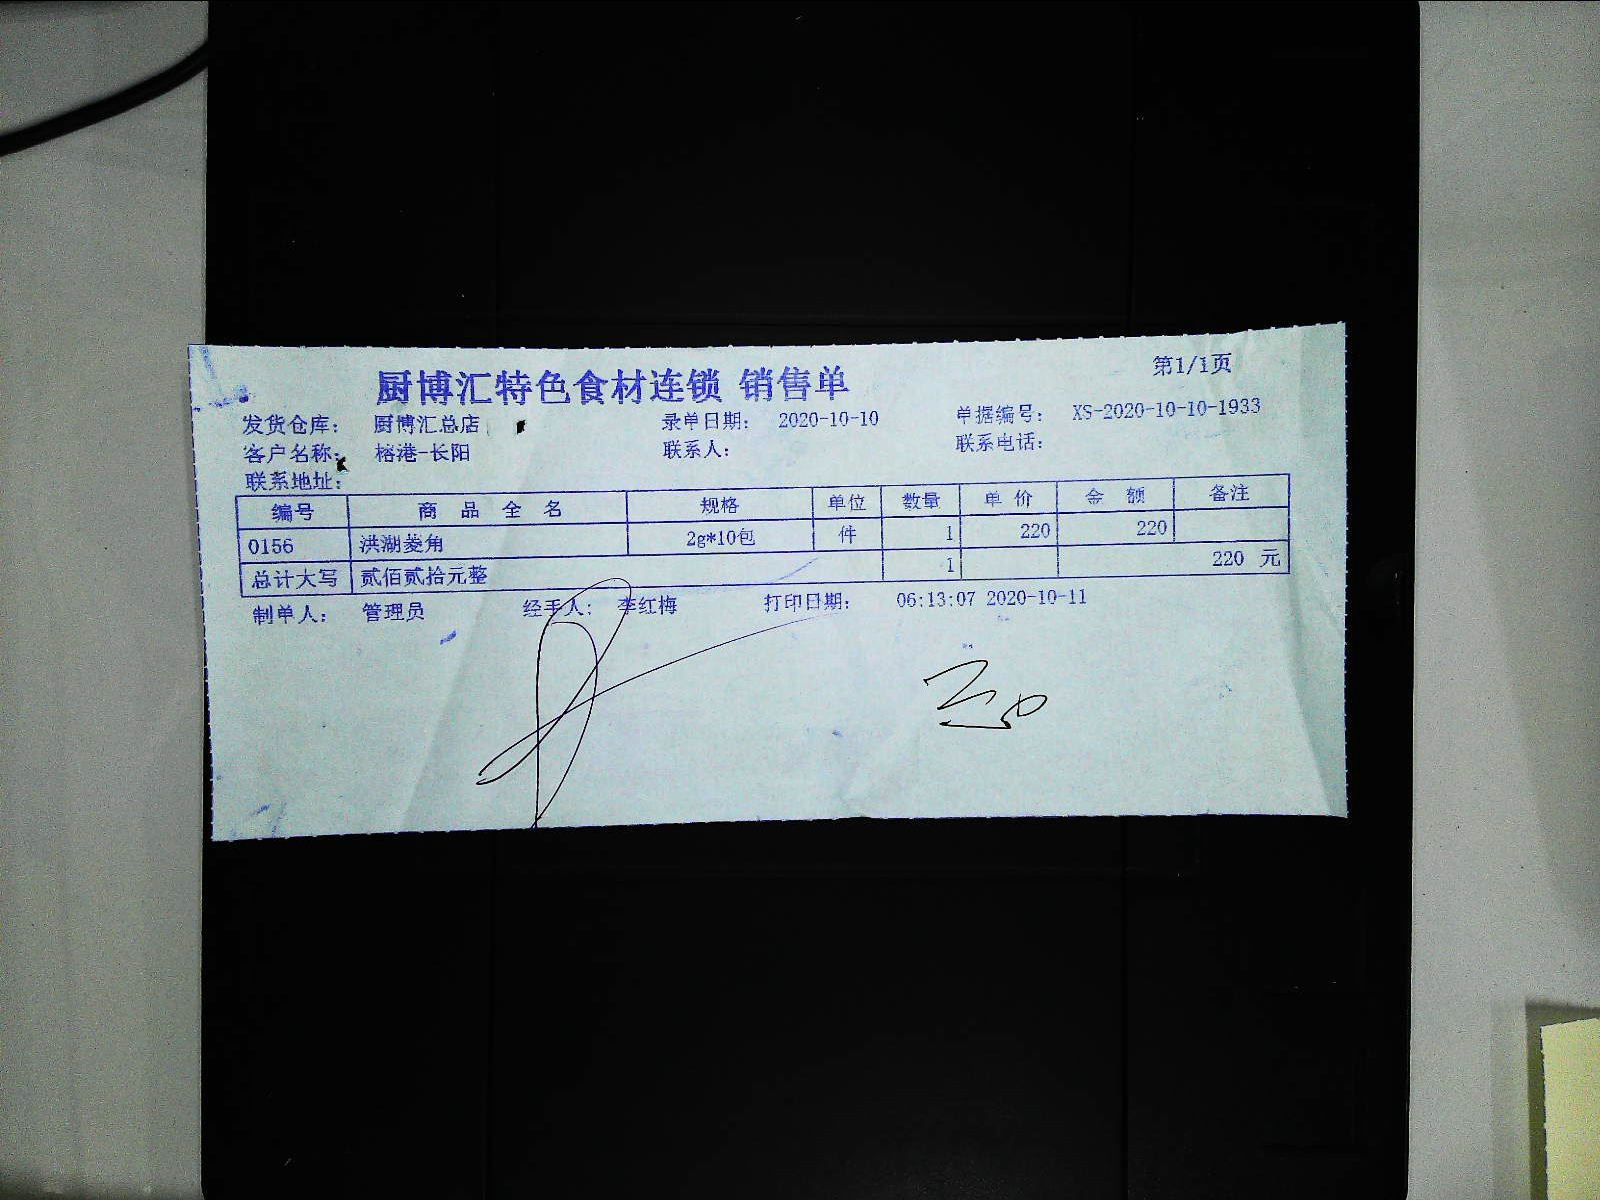 第1/1页
厨博汇特色食材连锁 销售单
发货仓库： 厨博汇总店 录单日期： 2020-10-10 单据编号： XS-2020-10-10-1933
客户名称： 榕港-长阳 联系人： 联系电话：
联系地址：
编号 商品全名 规格 单位 数量 单价 金额 备注
0156 洪湖菱角 2g*10包 件 1 220 220
总计大写 贰佰贰拾元整 1 220 元
制单人： 管理员 经手人： 李红梅 打印日期： 06:13:07 2020-10-11